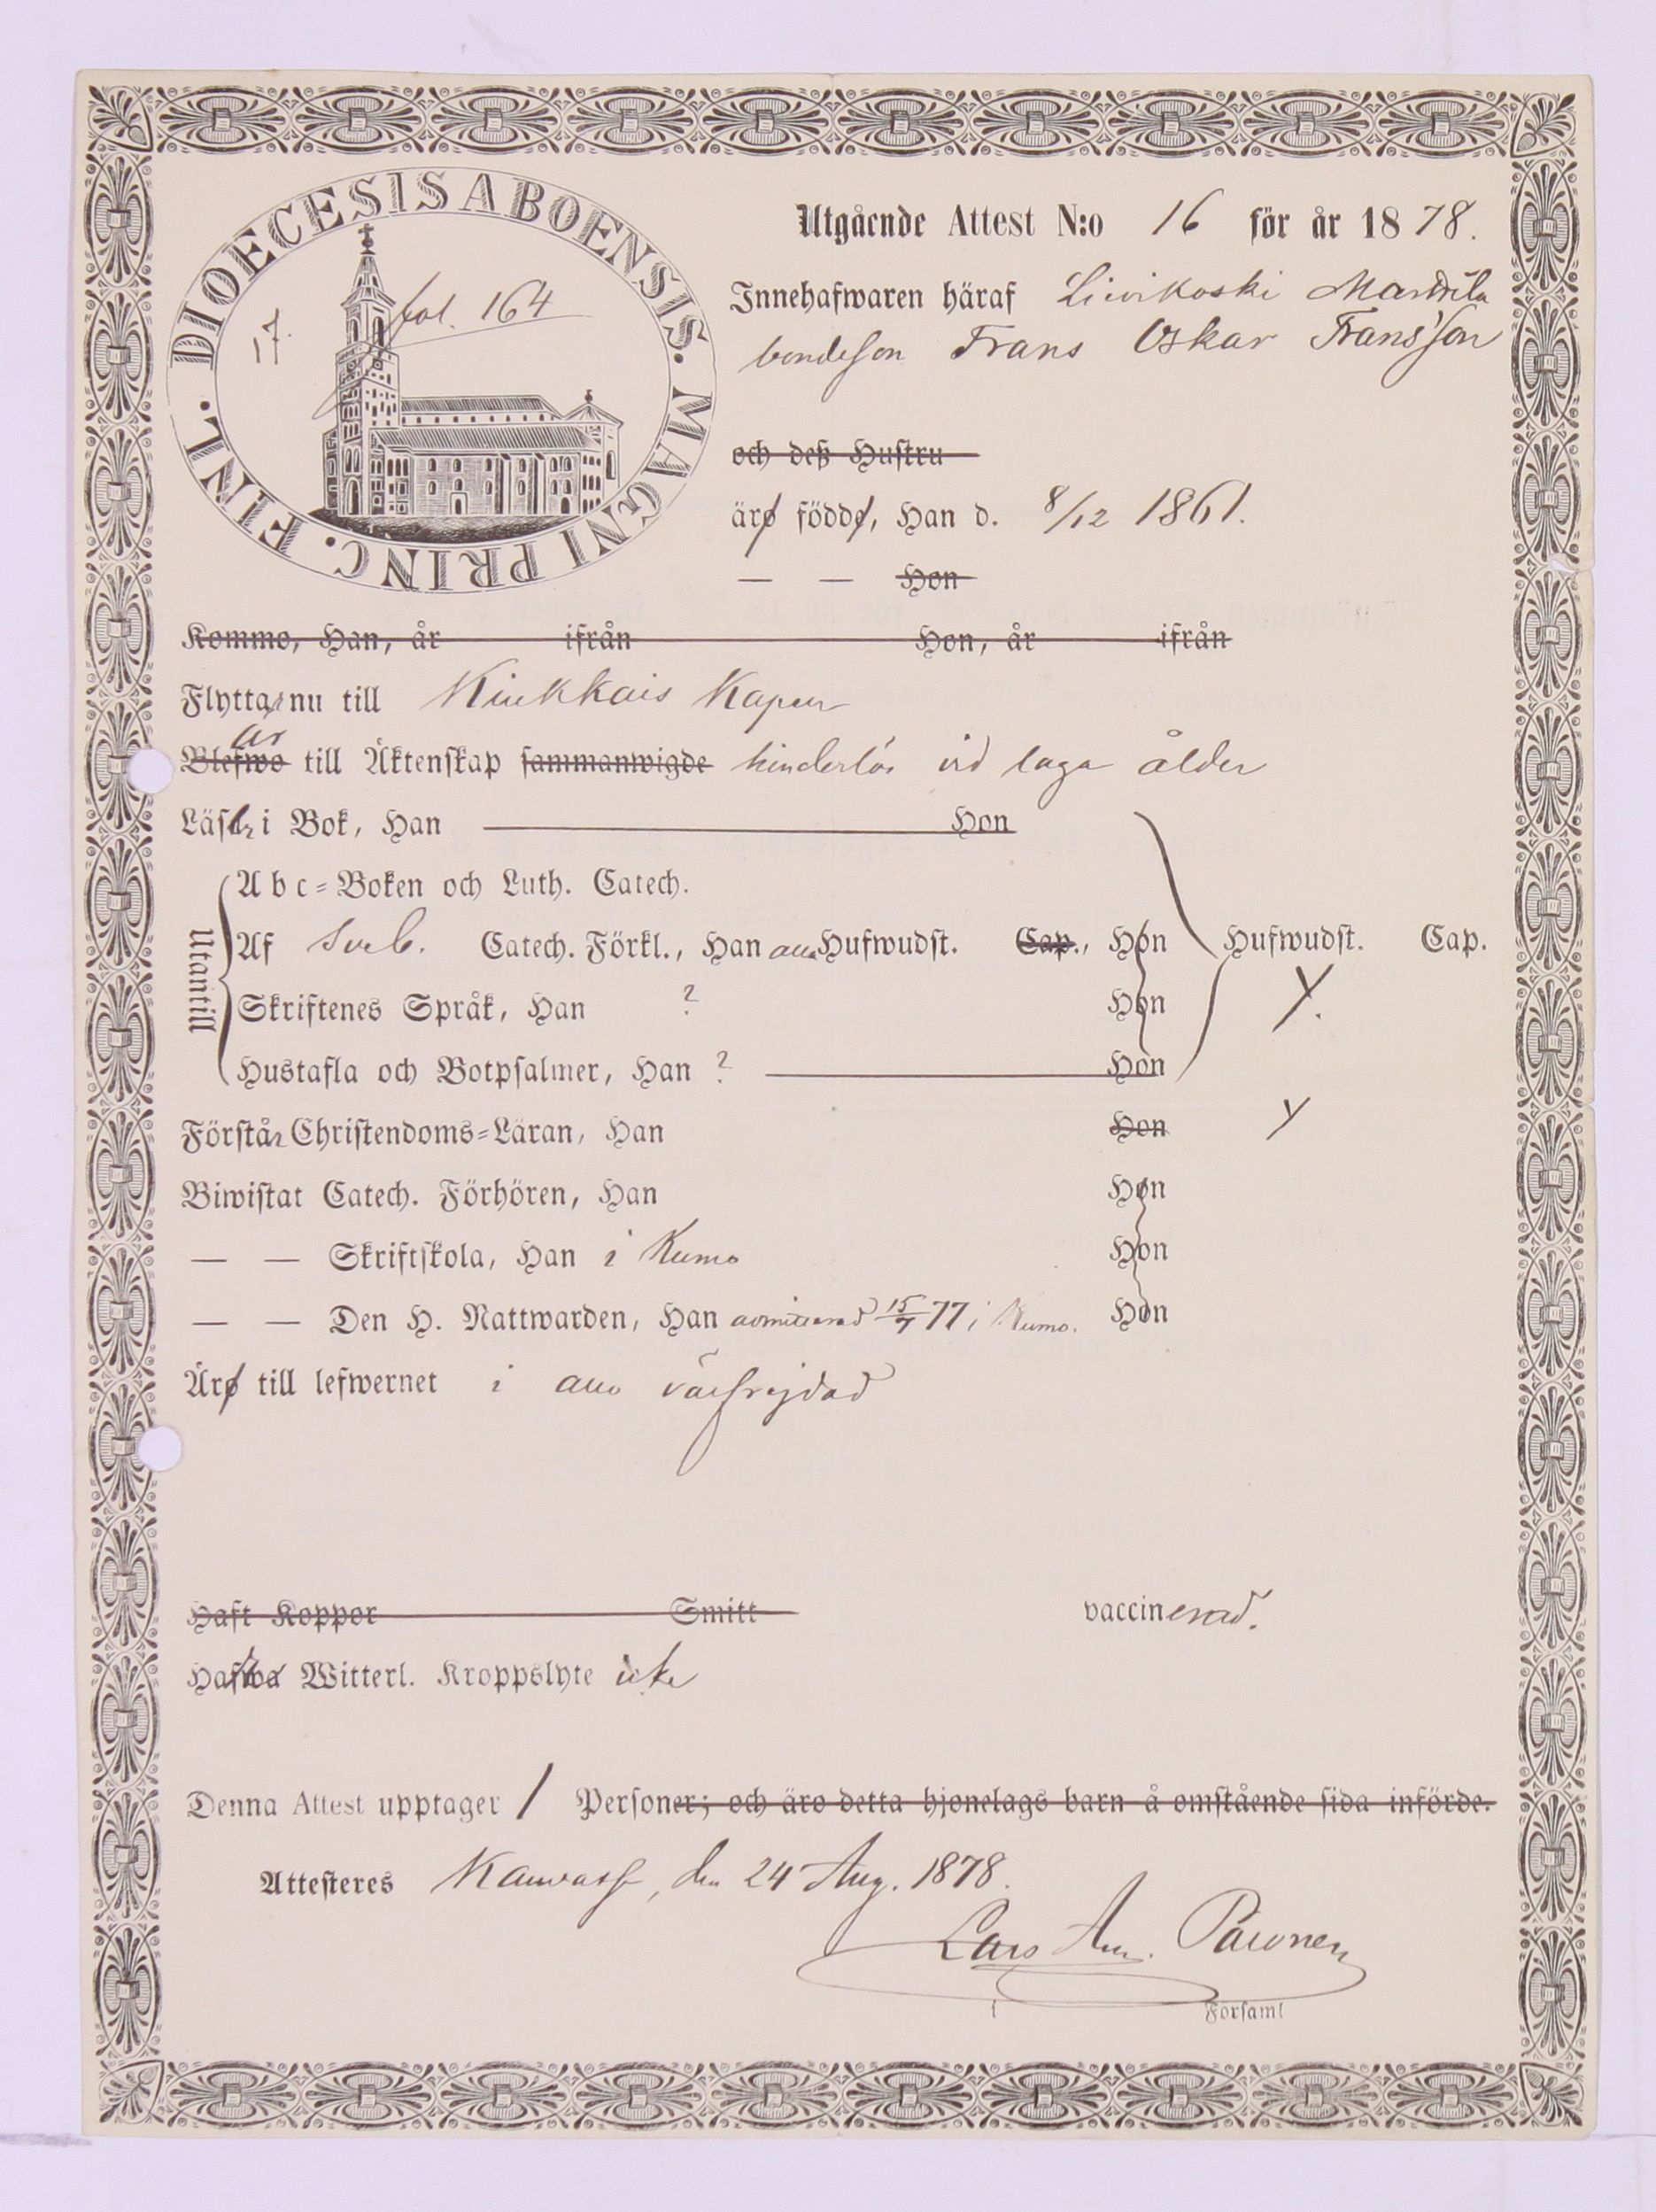 DIOECESIS ABOENSIS. MAGNI PRINC. FINL.
17.
fol. 164
Utgående Attest N:o 16 för år 1878.
Innehafwaren häraf Liwikoski Mandila
bondeson Frans Oskar Frans'son
och deß Hustru
äro födde, Han d. 8/12 1861.
— — Hon
Kommo, Han, år ifrån Hon, år ifrån
Flyttar nu till Kiukkais Kapell
Blefwo är till Äktenskap sammanwigde hinderlös vid laga ålder
Läser i Bok, Han Hon
Utantill
Abc-Boken och Luth. Catech.
Af Sveb. Catech. Förkl., Han alla Hufwudst. Cap., Hon Hufwudst. Cap.
Skriftenes Språk, Han ? Hon
Hustafla och Botpsalmer, Han ? Hon
Förstår Christendoms-Läran, Han Hon
Biwistat Catech. Förhören, Han Hon
— — Skriftskola, Han i Kumo Hon
— — Den H. Nattwarden, Han admitterad 15/7 77 i Kumo. Hon
Äro till lefwernet i allo välfrejdad
Haft Koppor Smitt vaccinerad.
Hafwa Witterl. Kroppslyte icke
Denna Attest upptager 1 Personer; och äro detta hjonelags barn å omstående sida införde.
Attesteres Kauvatsa, den 24 Aug. 1878.
Lars Päivönen
i Församl